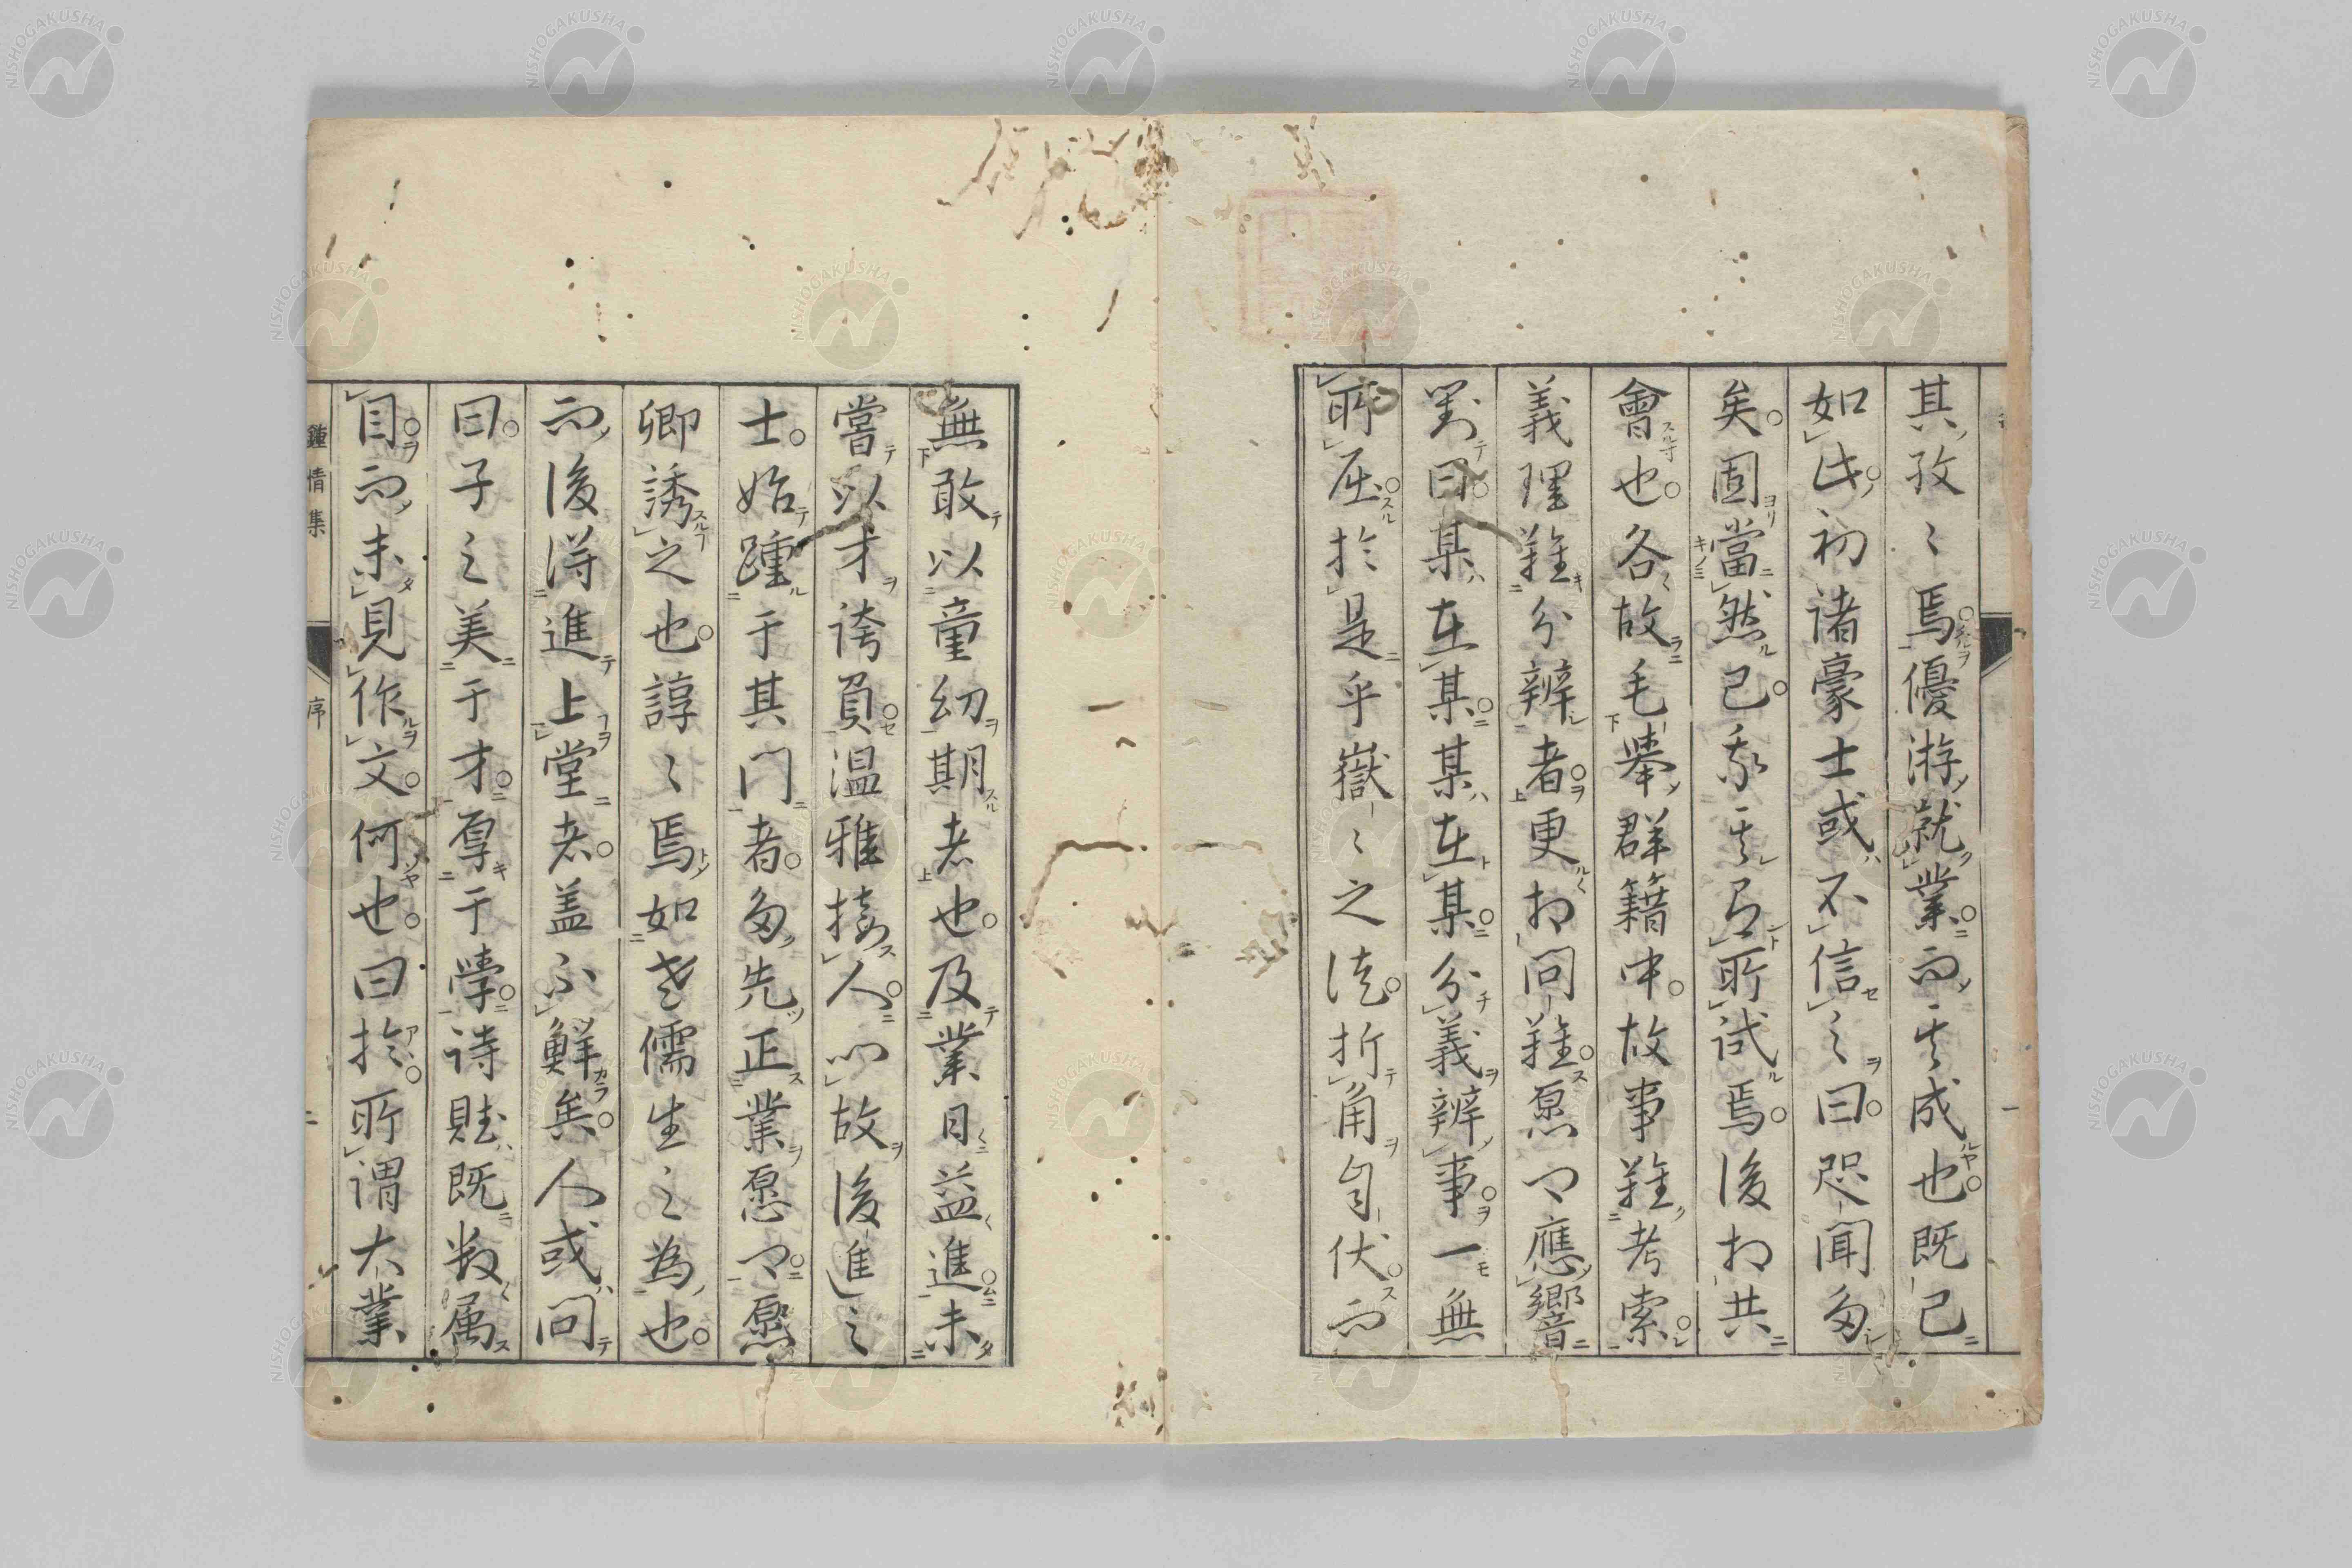 其孜〻焉優游就業而其成也既已
如此初諸豪士或不信之曰咫聞多
矣固當然已我其与所試焉後相共
會也各故毛舉群籍中故事難考索
義理難分辨者更相問難愿〻應響
對曰某在某某在某分義辨事一無
所屈於是乎嶽〻之徒折角自伏而
無敢以童幼期者也及業日益進未
嘗以才誇負温雅接人以故後進之
士始踵于其門者多先正業愿〻愿
卿誘之也諄〻焉如老儒生之為也
而後得進上堂者盖不鮮矣人或問
曰子之美于才厚于學詩賦既數属
目而未見作文何也曰於所謂大業
鍾情集
序
二